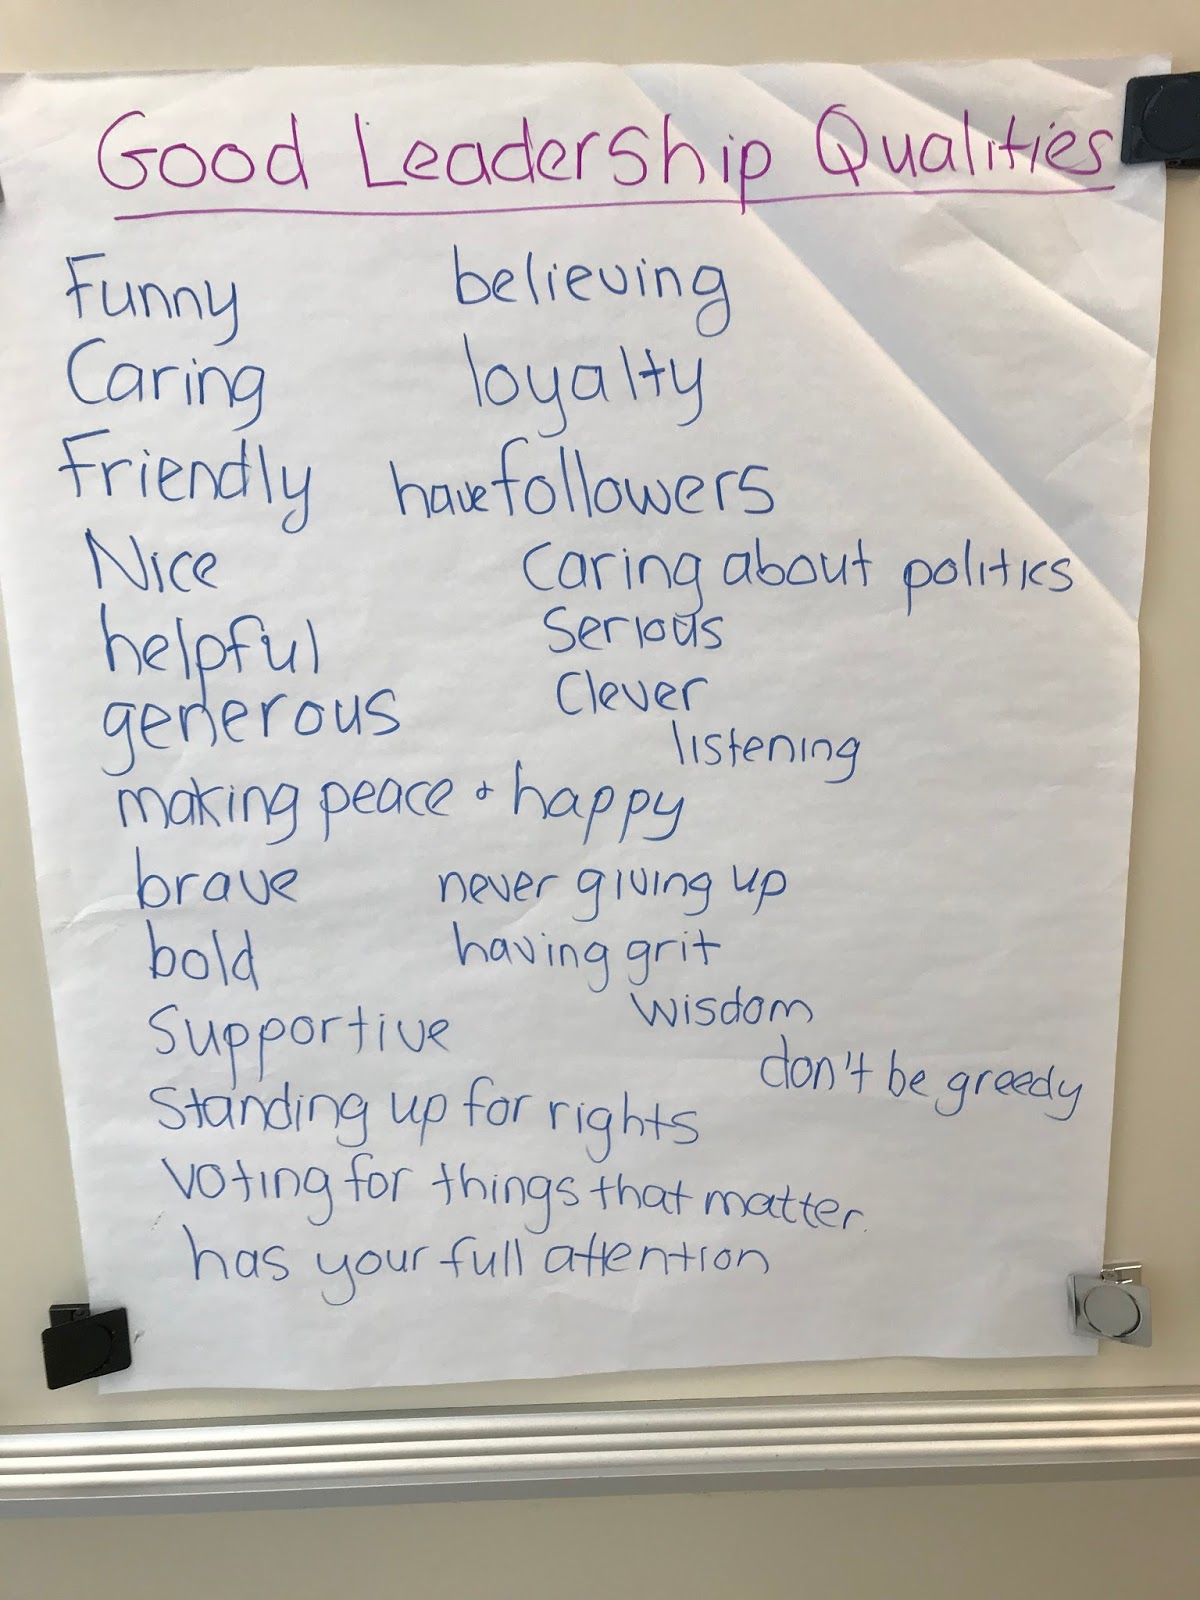 Good Leadership Qualities
Funny believing
Caring loyalty
Friendly have followers
Nice Caring about politics
helpful Serious
generous Clever
listening
making peace + happy
brave never giving up
bold having grit
wisdom
Supportive
don't be greedy
Standing up for rights
Voting for things that matter.
has your full attention